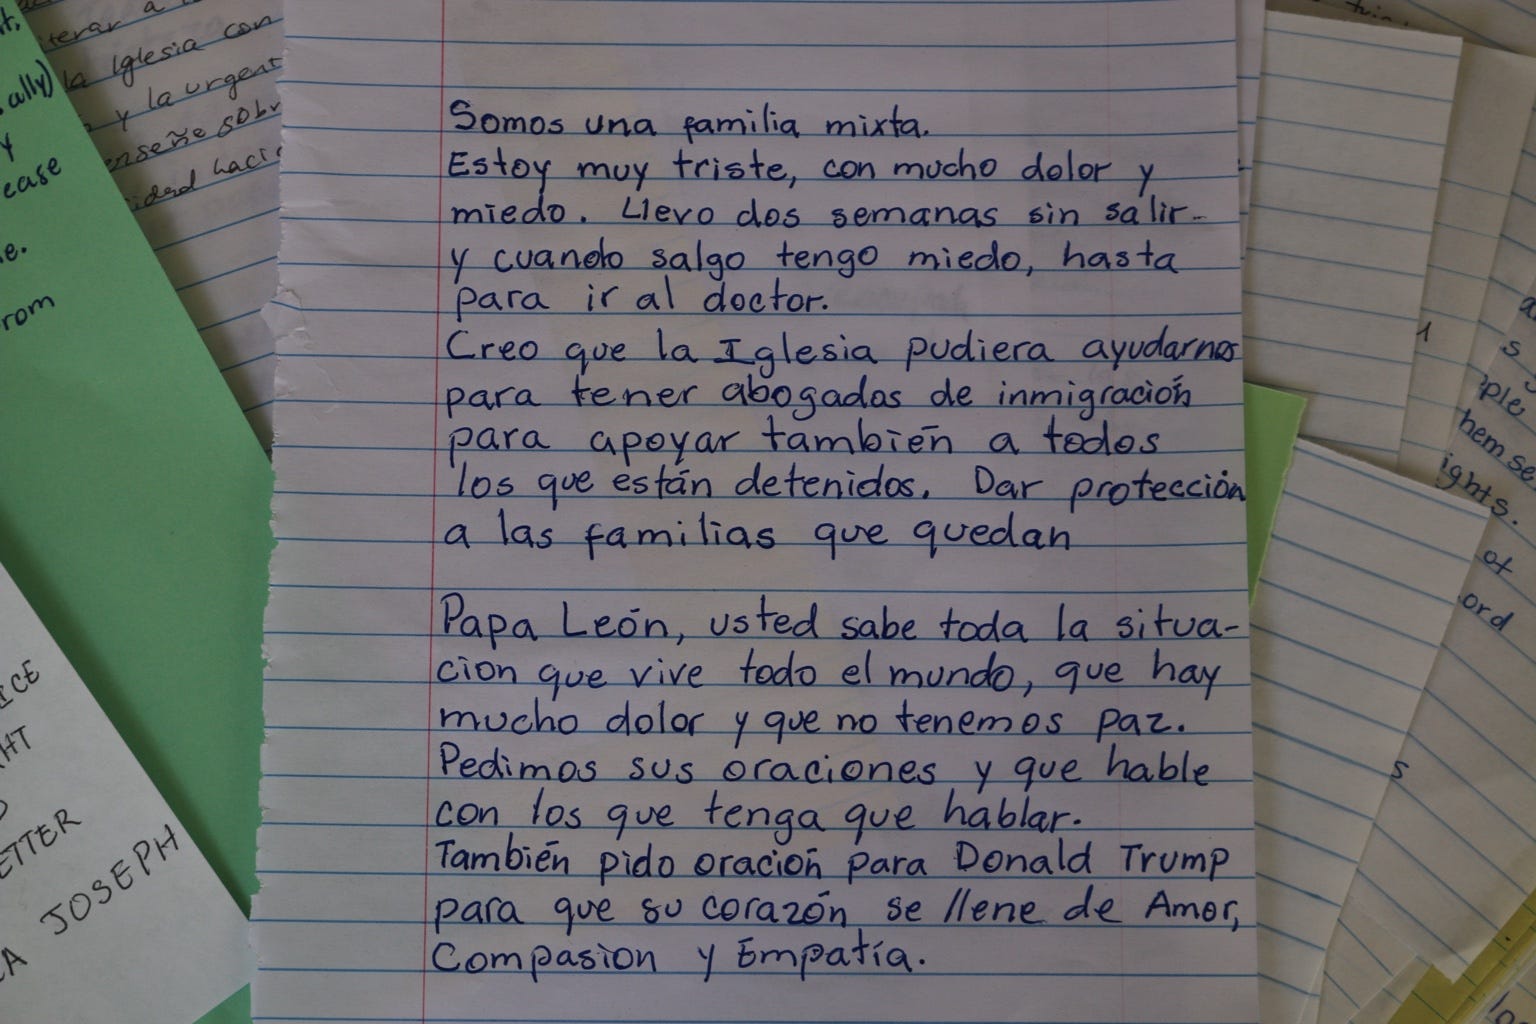 Somos una familia mixta.
Estoy muy triste, con mucho dolor y
miedo. Llevo dos semanas sin salir-
y cuando salgo tengo miedo, hasta
para ir al doctor.
Creo que la Iglesia pudiera ayudarnos
para tener abogados de inmigración
para apoyar también a todos
los que están detenidos. Dar protección
a las familias que quedan
Papa León, usted sabe toda la situa-
cion que vive todo el mundo, que hay
mucho dolor y que no tenemos paz.
Pedimos sus oraciones y que hable
con los que tenga que hablar.
También pido oración para Donald Trump
para que su corazón se llene de Amor,
Compasion y Empatía.
la Iglesia con
y la urgent
enseñe sobr
ease
rom
ETTER
JOSEPH
hemse
ights.
ot
ord